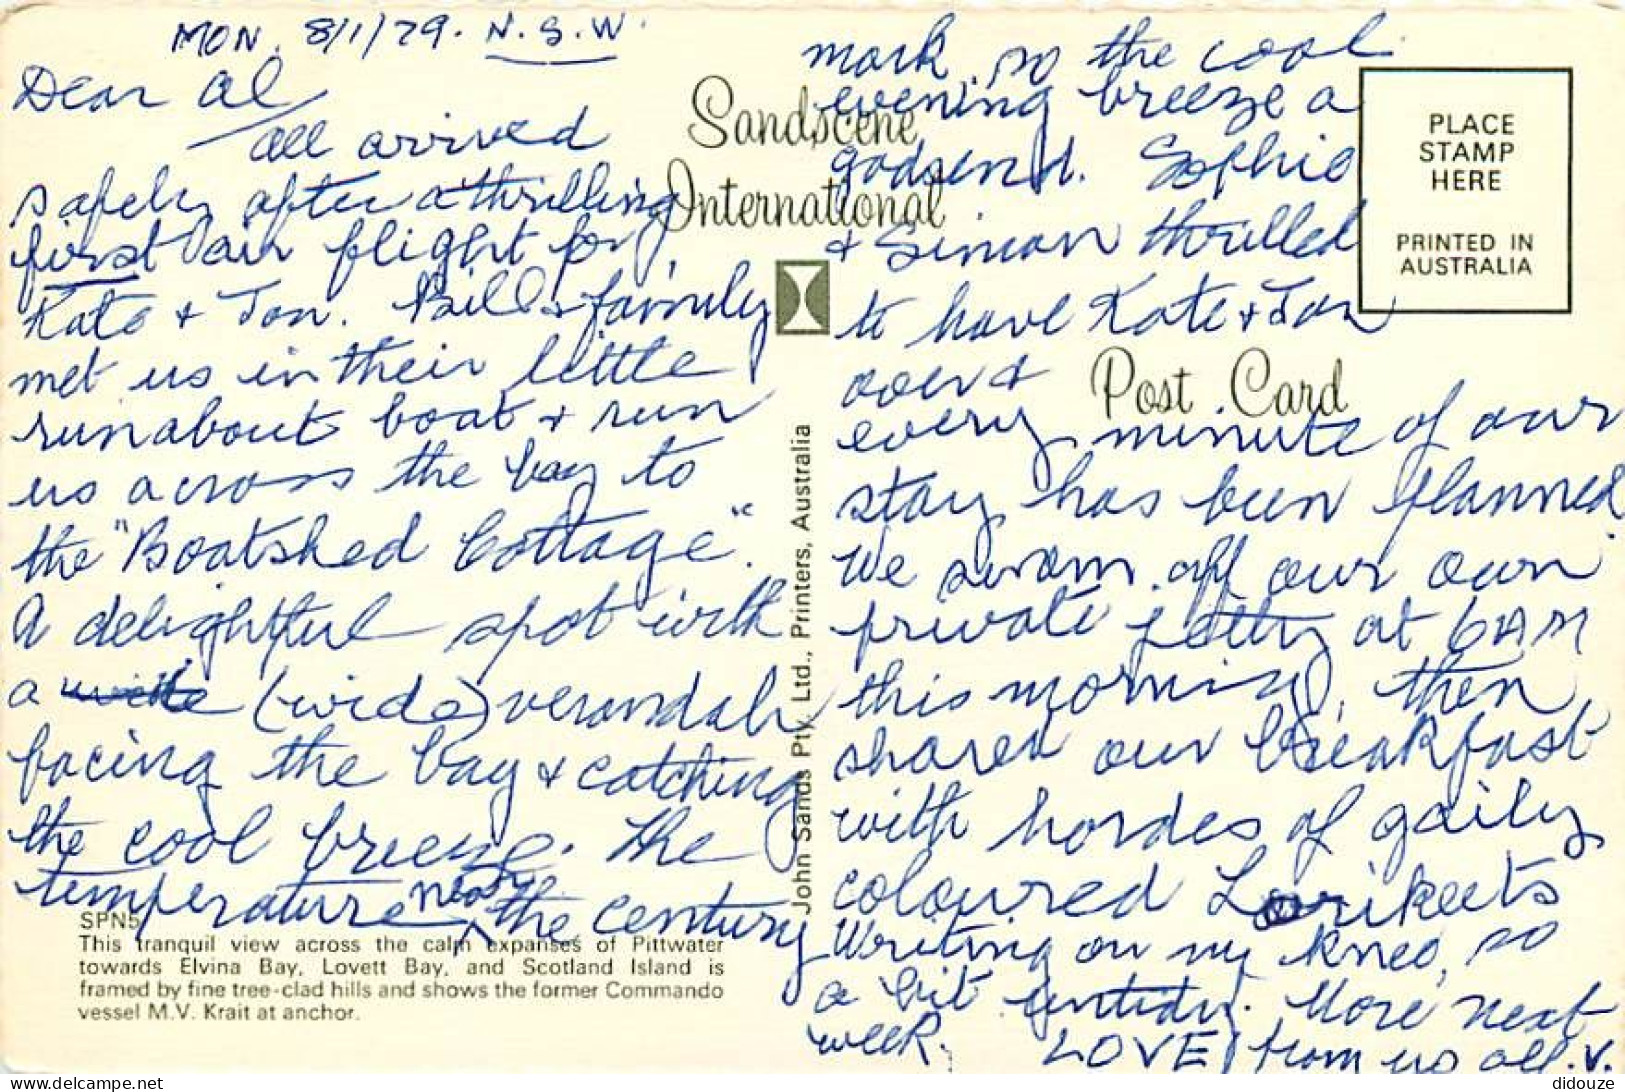 MON. 8/1/79. N.S.W.
Dear Al
all arrived
safely after a thrilling
first air flight for
Kate + Jon. Bill & family
met us in their little
runabout boat + run
us across the bay to
the "Boatshed Cottage".
A delightful spot with
a wide (wide) verandah
facing the bay + catching
the cool breeze. The
temperature near the century
mark, so the cool
evening breeze a
godsend. Sophie
+ Simon thrilled
to have Kate + Jon
over +
every minute of our
stay has been planned.
We swam off our own
private jetty at 6AM
this morning, then
shared our breakfast
with hordes of gaily
coloured Lorikeets
Writing on my knee, so
a bit untidy. More next
week. LOVE from us all. V.
Sandscene
International
PLACE
STAMP
HERE
PRINTED IN
AUSTRALIA
Post Card
John Sands Pty. Ltd., Printers, Australia
SPN5
This tranquil view across the calm expanses of Pittwater
towards Elvina Bay, Lovett Bay, and Scotland Island is
framed by fine tree-clad hills and shows the former Commando
vessel M.V. Krait at anchor.
didouze